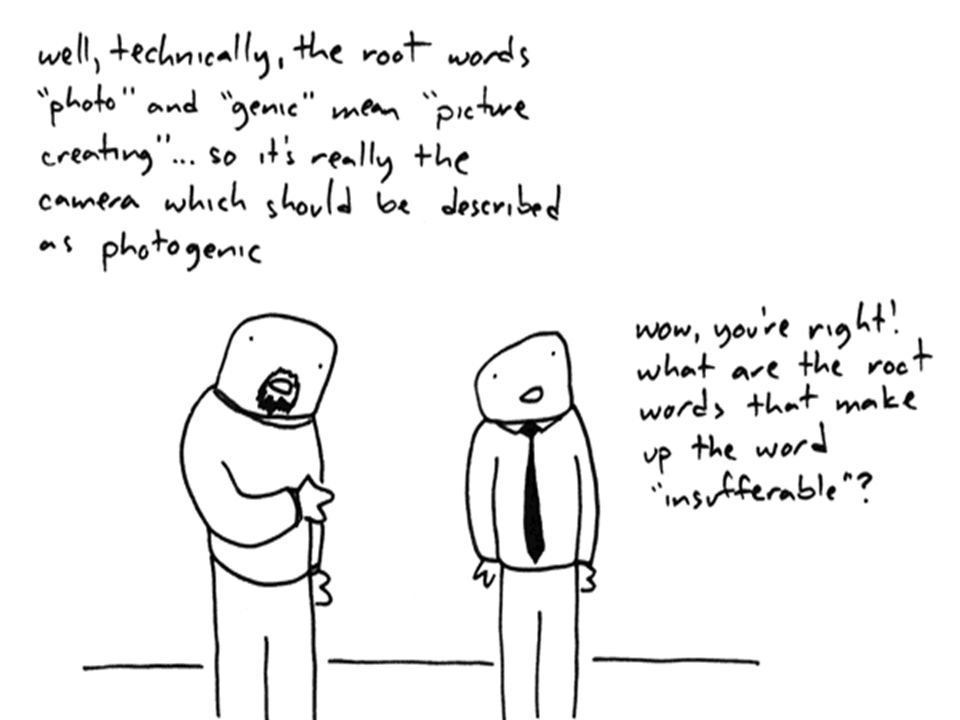 well, technically, the root words
"photo" and "genic" mean "picture
creating"... so it's really the
camera which should be described
as photogenic
wow, you're right!
what are the root
words that make
up the word
"insufferable"?